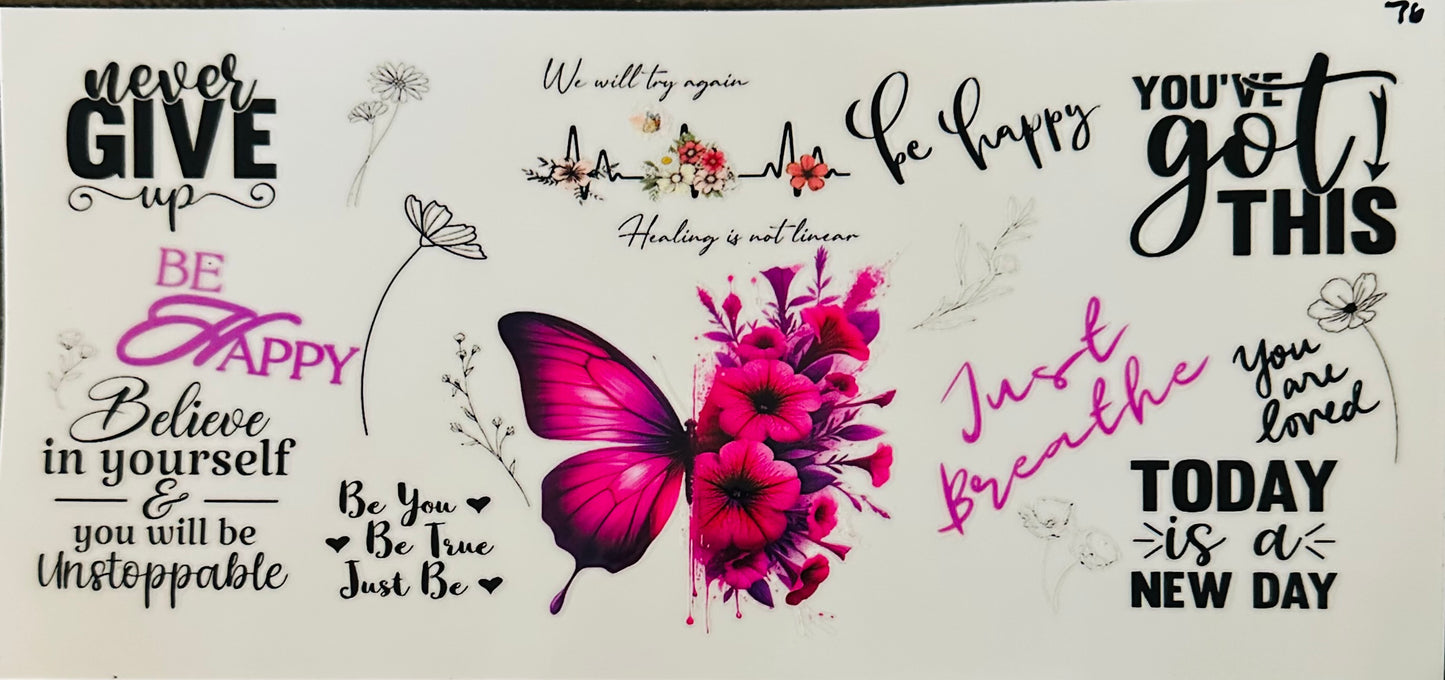 76
never
GIVE
up
We will try again
be happy
YOU'VE
got
THIS
Healing is not linear
BE
HAPPY
Believe
in yourself
&
you will be
Unstoppable
Be You
Be True
Just Be
Just
Breathe
You
are
loved
TODAY
is a
NEW DAY